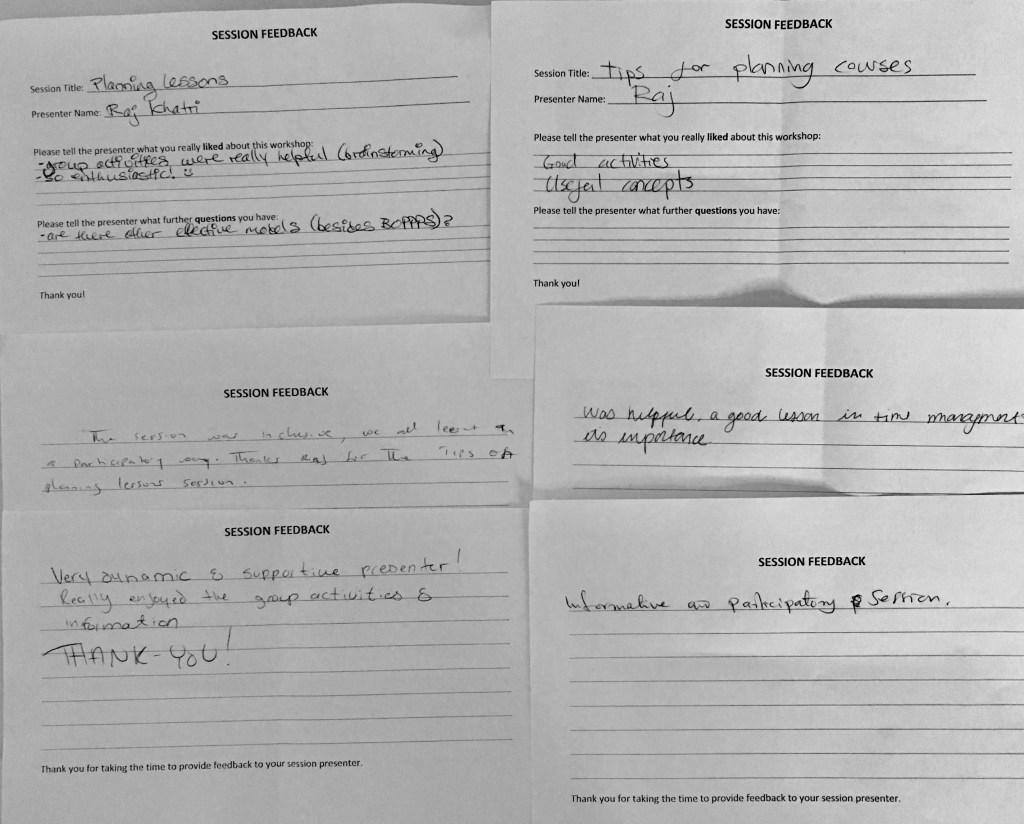 SESSION FEEDBACK
Session Title: Planning lessons
Presenter Name: Raj Khatri
Please tell the presenter what you really liked about this workshop:
-group activities were really helpful (brainstorming)
-so enthusiastic! :)
Please tell the presenter what further questions you have:
-are there other effective models (besides BOPPPS)?
Thank you!
SESSION FEEDBACK
Session Title: Tips for planning courses
Presenter Name: Raj
Please tell the presenter what you really liked about this workshop:
Good activities
Useful concepts
Please tell the presenter what further questions you have:
Thank you!
SESSION FEEDBACK
The session was inclusive, we all learnt in
a participatory way. Thanks Raj for the Tips of
planning lessons session.
SESSION FEEDBACK
Was helpful, a good lesson in time managment
its importance
SESSION FEEDBACK
Very dynamic & supportive presenter!
Really enjoyed the group activities &
information
THANK-YOU!
Thank you for taking the time to provide feedback to your session presenter.
SESSION FEEDBACK
Informative and participatory Session.
Thank you for taking the time to provide feedback to your session presenter.